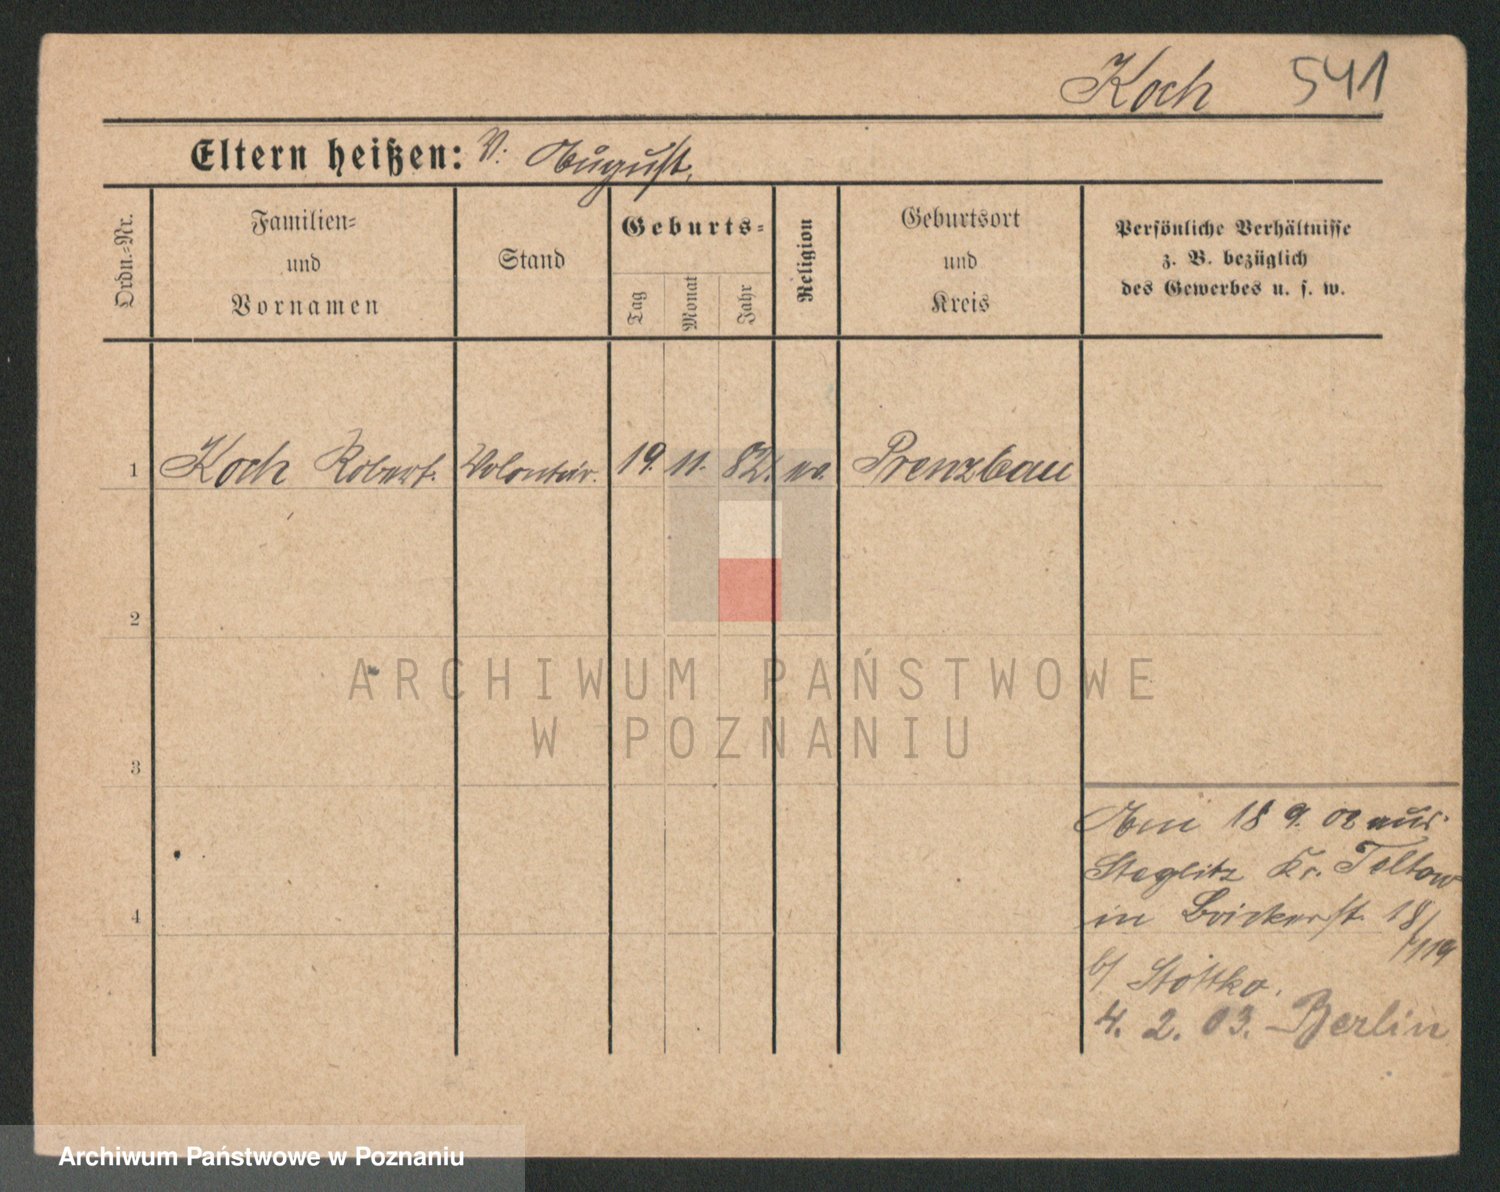 Koch 541
Eltern heißen: V: August.
Ordn.-Nr.
Familien-
und
Vornamen
Stand
Geburts-
Tag
Monat
Jahr
Religion
Geburtsort
und
Kreis
Persönliche Verhältnisse
z. B. bezüglich
des Gewerbes u. s. w.
1 Koch Robert. Volontär. 19. 11. 82. ev. Prenzlau
2
3
4
Am 18 9. 02 aus
Steglitz Kr. Teltow
in 18/119
b/
4. 2. 03. Berlin
ARCHIWUM PAŃSTWOWE
W POZNANIU
Archiwum Państwowe w Poznaniu